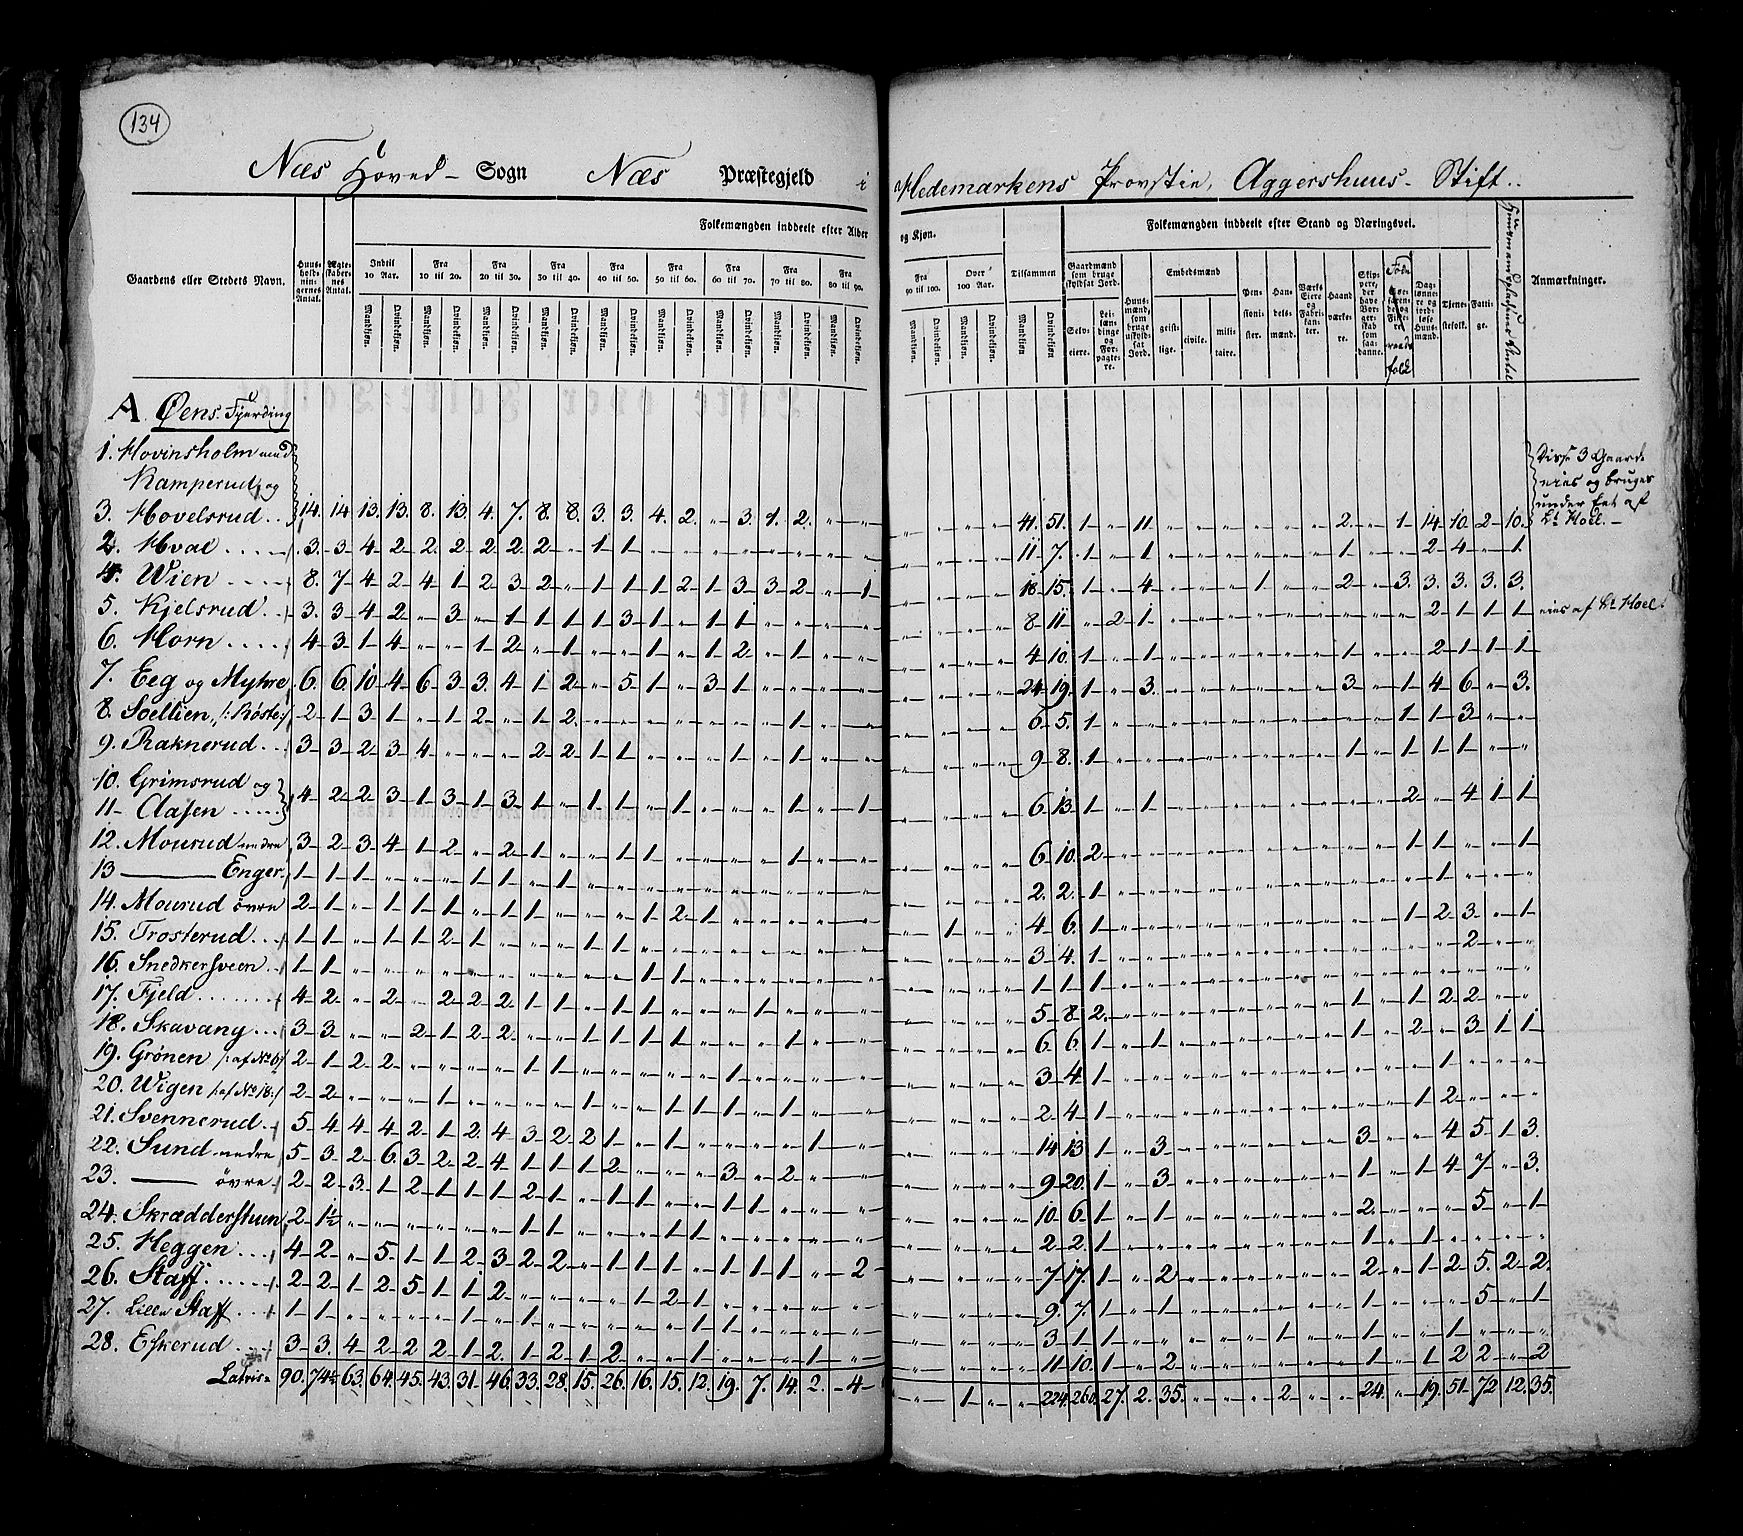 134
Næs Hoved- Sogn Næs Præstegjeld i Hedemarkens Provstie, Aggershuus- Stift.
Gaardens eller Stedets Navn.
Huus-holdningernes Antal.
Ægteskabernes Antal.
Folkemængden inddeelt efter Alder og Kjøn.
Indtil 10 Aar.
Fra 10 til 20.
Fra 20 til 30.
Fra 30 til 40.
Fra 40 til 50.
Fra 50 til 60.
Fra 60 til 70.
Fra 70 til 80.
Fra 80 til 90.
Fra 90 til 100.
Over 100 Aar.
Tilsammen
Mandkjøn. Qvindekjøn.
Folkemængden inddeelt efter Stand og Næringsvei.
Gaardmænd som bruge skyldsat Jord.
Selv-eiere.
Lei-lændinge og For-pagtere.
Huusmænd, som bruge uskyldsat Jord.
Embedsmænd
geistlige.
civile.
militaire.
Pensionister.
Handelsmænd.
Værks Eiere og Fabrikanter.
Haandværkere.
Skippere, der have Borgerskab som saadanne.
Daglønnere og jordløse Huusmænd.
Tjenestefolk.
Fattige.
Anmærkninger.
A. Øens Fjerding
1. Hovinsholm med
Kamperud, og
3. Hovelsrud .. 14. 14 13. 13. 8. 13. 4. 7. 8. 8. 3. 3. 4. 2. " 3. 1. 2. " " " " " " 41. 51. 1 " 11 " " " " " " 2. " 1 14 10. 2 10.
Disse 3 Gaarde
eies og bruges
under Eet af
Lt Hoel.
2. Hval .... 3. 3 4 2 2 2 2 2 2 " 1 1 " " " " " " " " " " " " 11 7. 1 " 1 " " " " " " 1 " " 2 4 " 1
4. Wien .... 8. 7 4 2 4 1 2 3 2 " 1 1 1 2 1 3 3 2 " 1 " " " " 18 15. 1 " 4 " " " 1 " " 2 " 3. 3. 3. 3. 3.
5. Kjelsrud .. 3. 3 4 2 " 3 " 1 1 1 1 3 1 " 1 1 " " " " " " " " 8 11 " 2 1 " " " " " " " " " 2 1 1 1 eies af Lt Hoel
6. Horn .... 4 3 1 4 " " 1 2 " 1 " " 1 " 1 2 " 1 " " " " " " 4 10. 1 " 1 " " " " " " 1 " " 2 1 1 1
7. Eeg og Myhre 6. 6. 10 4 6 3 3. 4 1 2 " 5. 1 " 3 1 " " " " " " " " 24 19. 1 " 3. " " " " " " 3 " 1 4 6 " 3.
8. Soellien, /: Røste:/ 2 1 3 1 " 1 2 " 1 2. " " " " " " " 1 " " " " " " 6 5. 1 " " " " " " " " " " 1 1 3 " "
9. Raknerud .. 3 3 2 3 4 " " " 2 2 1 1 " " " 1 " 1 " " " " " " 9 8. 1 " " " " " " " " 1 " 1 1 1 " "
10. Grimsrud og
11 Clasen .... 4 2 2 3 1 3 1 3 1 " 1 1 " 1 " " " 1 " 1 " " " " 6 13. 1 " 1 " " " " " " " " 2 " 4 1 1
12. Mourud nedre 3 2 3 4 1 2 " 2 1 " 1 1 " " " 1 " " " " " " 6 10. 2 " " " " " " " " " " 1 1 1 " 1
13 ——— Enger. 1 1 1 " " " 1 1 " 1 " " " " " " " " " " " " " " 2. 2. 1 " " " " " " " " " " " 1 " " "
14. Mourud øvre 2 1 " 1 1 1 " 1 1 " " " 1 2 1 " " " " " " 1 " " 4 6. 1 " " " " " " " " " " 1 2 3 " 1
15. Trosterud .. 1 1 " 1 1 2 1 " " " 1 " " " " " " " " " " 3 4. 1 " " " " " " " " " " " " 2 " "
16. Snedkersveen . 1 1 " " " " " " " " " " 1 1 " " " " " " " " " " 1 1 1 " " " " " " " " " " " " " " "
17. Fjeld ...... 4 2 " 2 " 2 2 2 1 1 " 1 1 " " " 1 " " " " " " " 5 8 2. " " " " " " " " 1 " 1 2 2 " "
18. Skavang ... 3 3 " " 2 1 2 2 " " 1 1 1 1 " " " 1 " " " " " " 6 6. 1 " 1 " " " " " " 1 " 2 " 3 1 1
19. Grønen /: af No 6:/ 2 1 2 2 " " " " 1 1 " " " " " 1 " " " " " " " " 3 4. 1 " " " " " " " " " " " 1 " " "
20. Wigen /: af No 18:/ 2 2 " " " 1 " " " " 1 " 1 1 1 1 " 1 " " " " " " 2 4 1 " " " " " " " " " " 1 2 " " "
21. Svennerud . 5 4 4 4 2 1 2. 4 3 2 2 1 " 1 " " " " 1 " " " " " 14 13 1 " 3 " " " " " " 3 " " 4 5 1 3.
22. Sund nedre 5 3 2 6. 3 2 2 4 1 1 1 2 " " " 3 " 2 " " " " " " 9 20. 1 " 3 " " " " " " 1 " 1 4 7 " 3.
23. —— øvre 2 2 3. 1 2 1 1 1 2 1 " 1 1 " " 1 1 " " " " " " " 10 6. 1 " 1 " " " " " " 2. " " " 5 " 1
24. Skrædderstuen 2 1½ " " " " " " 1 1 " " 1 1 " " " " " " " " " " 2 2. 1 " " " " " " " " 1 " 1 " " " "
25. Heggen .. 4 2 " 5. 1 1 2 3 2 2 " 1 1 1 " 1 1 1 " 2 " " " " 7 17. 1 " 2 " " " " " " 2 " 1 2 5. 2 2.
26. Staff ..... 2 2 1 2 5 1 1 2 " " " " 1 2 1 " " " " " " " " " 9. 7. 1 " 1 " " " " " " 1 " " " 5 " 1
27. Lille Staff .. 1 1 " " " " 1 " 1 " " " " " 1 " " " " " " " " 3 1 1 " " " " " " 1 " " " " 1 " " "
28. Eskerud .. 3 3. 4 2 2 2 1 2. 1 2 1 2 " " 1 " " " 1 " " " " " 11 10. 1 " 2 " " " " " " 1 " 1 2 2 " 2
Latris 90. 74½ 63. 64. 45. 43. 31. 46. 33. 28. 15. 26. 16. 15. 12. 19. 7. 14. 2. 4 " 1 " " 224. 260. 27. 2. 35. " " " 2 " " 24. " 19. 51. 72 12. 35.